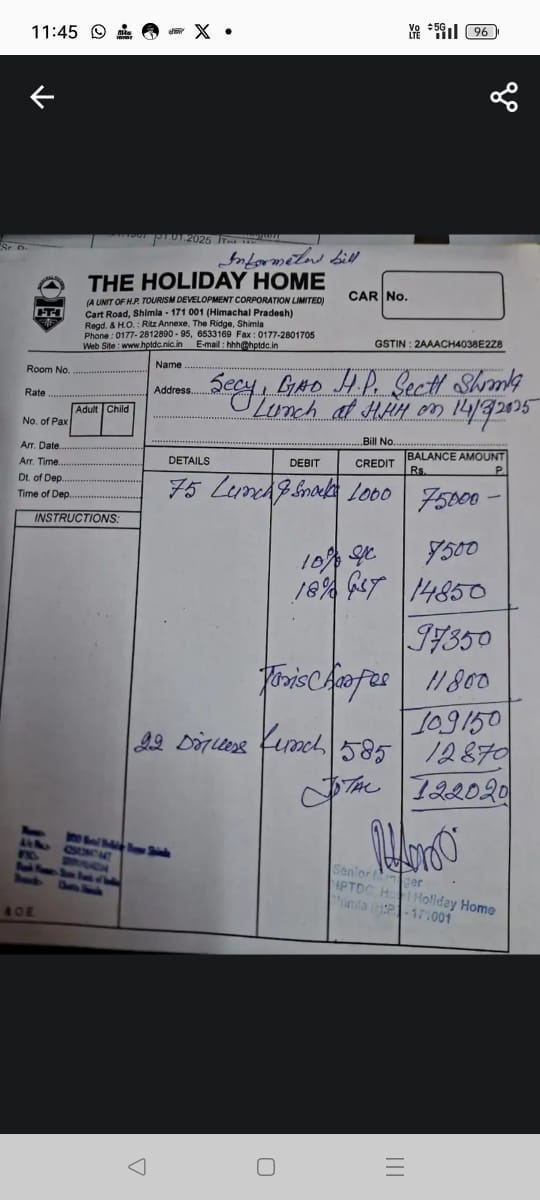 11:45
Vo LTE 5G 96
31.01.2025
Information bill
THE HOLIDAY HOME
(A UNIT OF H.P. TOURISM DEVELOPMENT CORPORATION LIMITED)
Cart Road, Shimla - 171 001 (Himachal Pradesh)
Regd. & H.O. : Ritz Annexe, The Ridge, Shimla
Phone : 0177- 2812890 - 95, 6533169 Fax : 0177-2801705
Web Site : www.hptdc.nic.in E-mail : hhh@hptdc.in
CAR No.
GSTIN : 2AAACH4038E2Z8
Room No.
Name
Rate
Address Secy, GAD H.P. Sectt Shimla
Adult Child
Lunch at HHH on 14/3/2025
No. of Pax
Arr. Date
Bill No.
Arr. Time
DETAILS DEBIT CREDIT BALANCE AMOUNT
Rs. P.
Dt. of Dep.
Time of Dep.
75 Lunch & Snacks 1000 75000 -
INSTRUCTIONS:
10% S/C 7500
18% GST 14850
97350
Taxis Charges 11800
109150
22 Drivers Lunch 585 12870
TOTAL 122020
Senior Manager
HPTDC, Hotel Holiday Home
Shimla (H.P.) - 171001
& O.E.